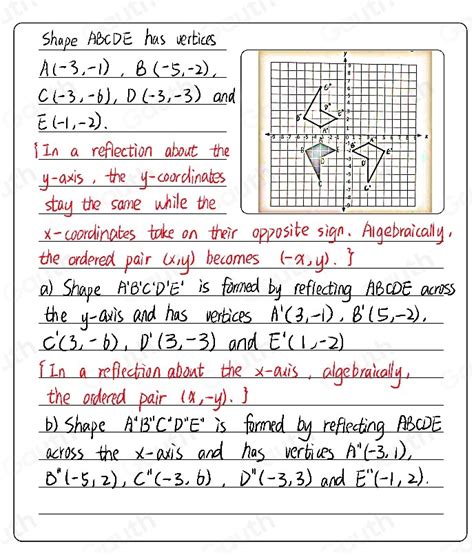 Shape ABCDE has vertices
A(-3,-1), B(-5,-2),
C(-3,-6), D(-3,-3) and
E(-1,-2).
{In a reflection about the
y-axis, the y-coordinates
stay the same while the
x-coordinates take on their opposite sign. Algebraically,
the ordered pair (x,y) becomes (-x,y).}
a) Shape A'B'C'D'E' is formed by reflecting ABCDE across
the y-axis and has vertices A'(3,-1), B'(5,-2),
C'(3,-6), D'(3,-3) and E'(1,-2)
{In a reflection about the x-axis, algebraically,
the ordered pair (x,-y).}
b) Shape A"B"C"D"E" is formed by reflecting ABCDE
across the x-axis and has vertices A"(-3,1),
B"(-5,2), C"(-3,6), D"(-3,3) and E"(-1,2).